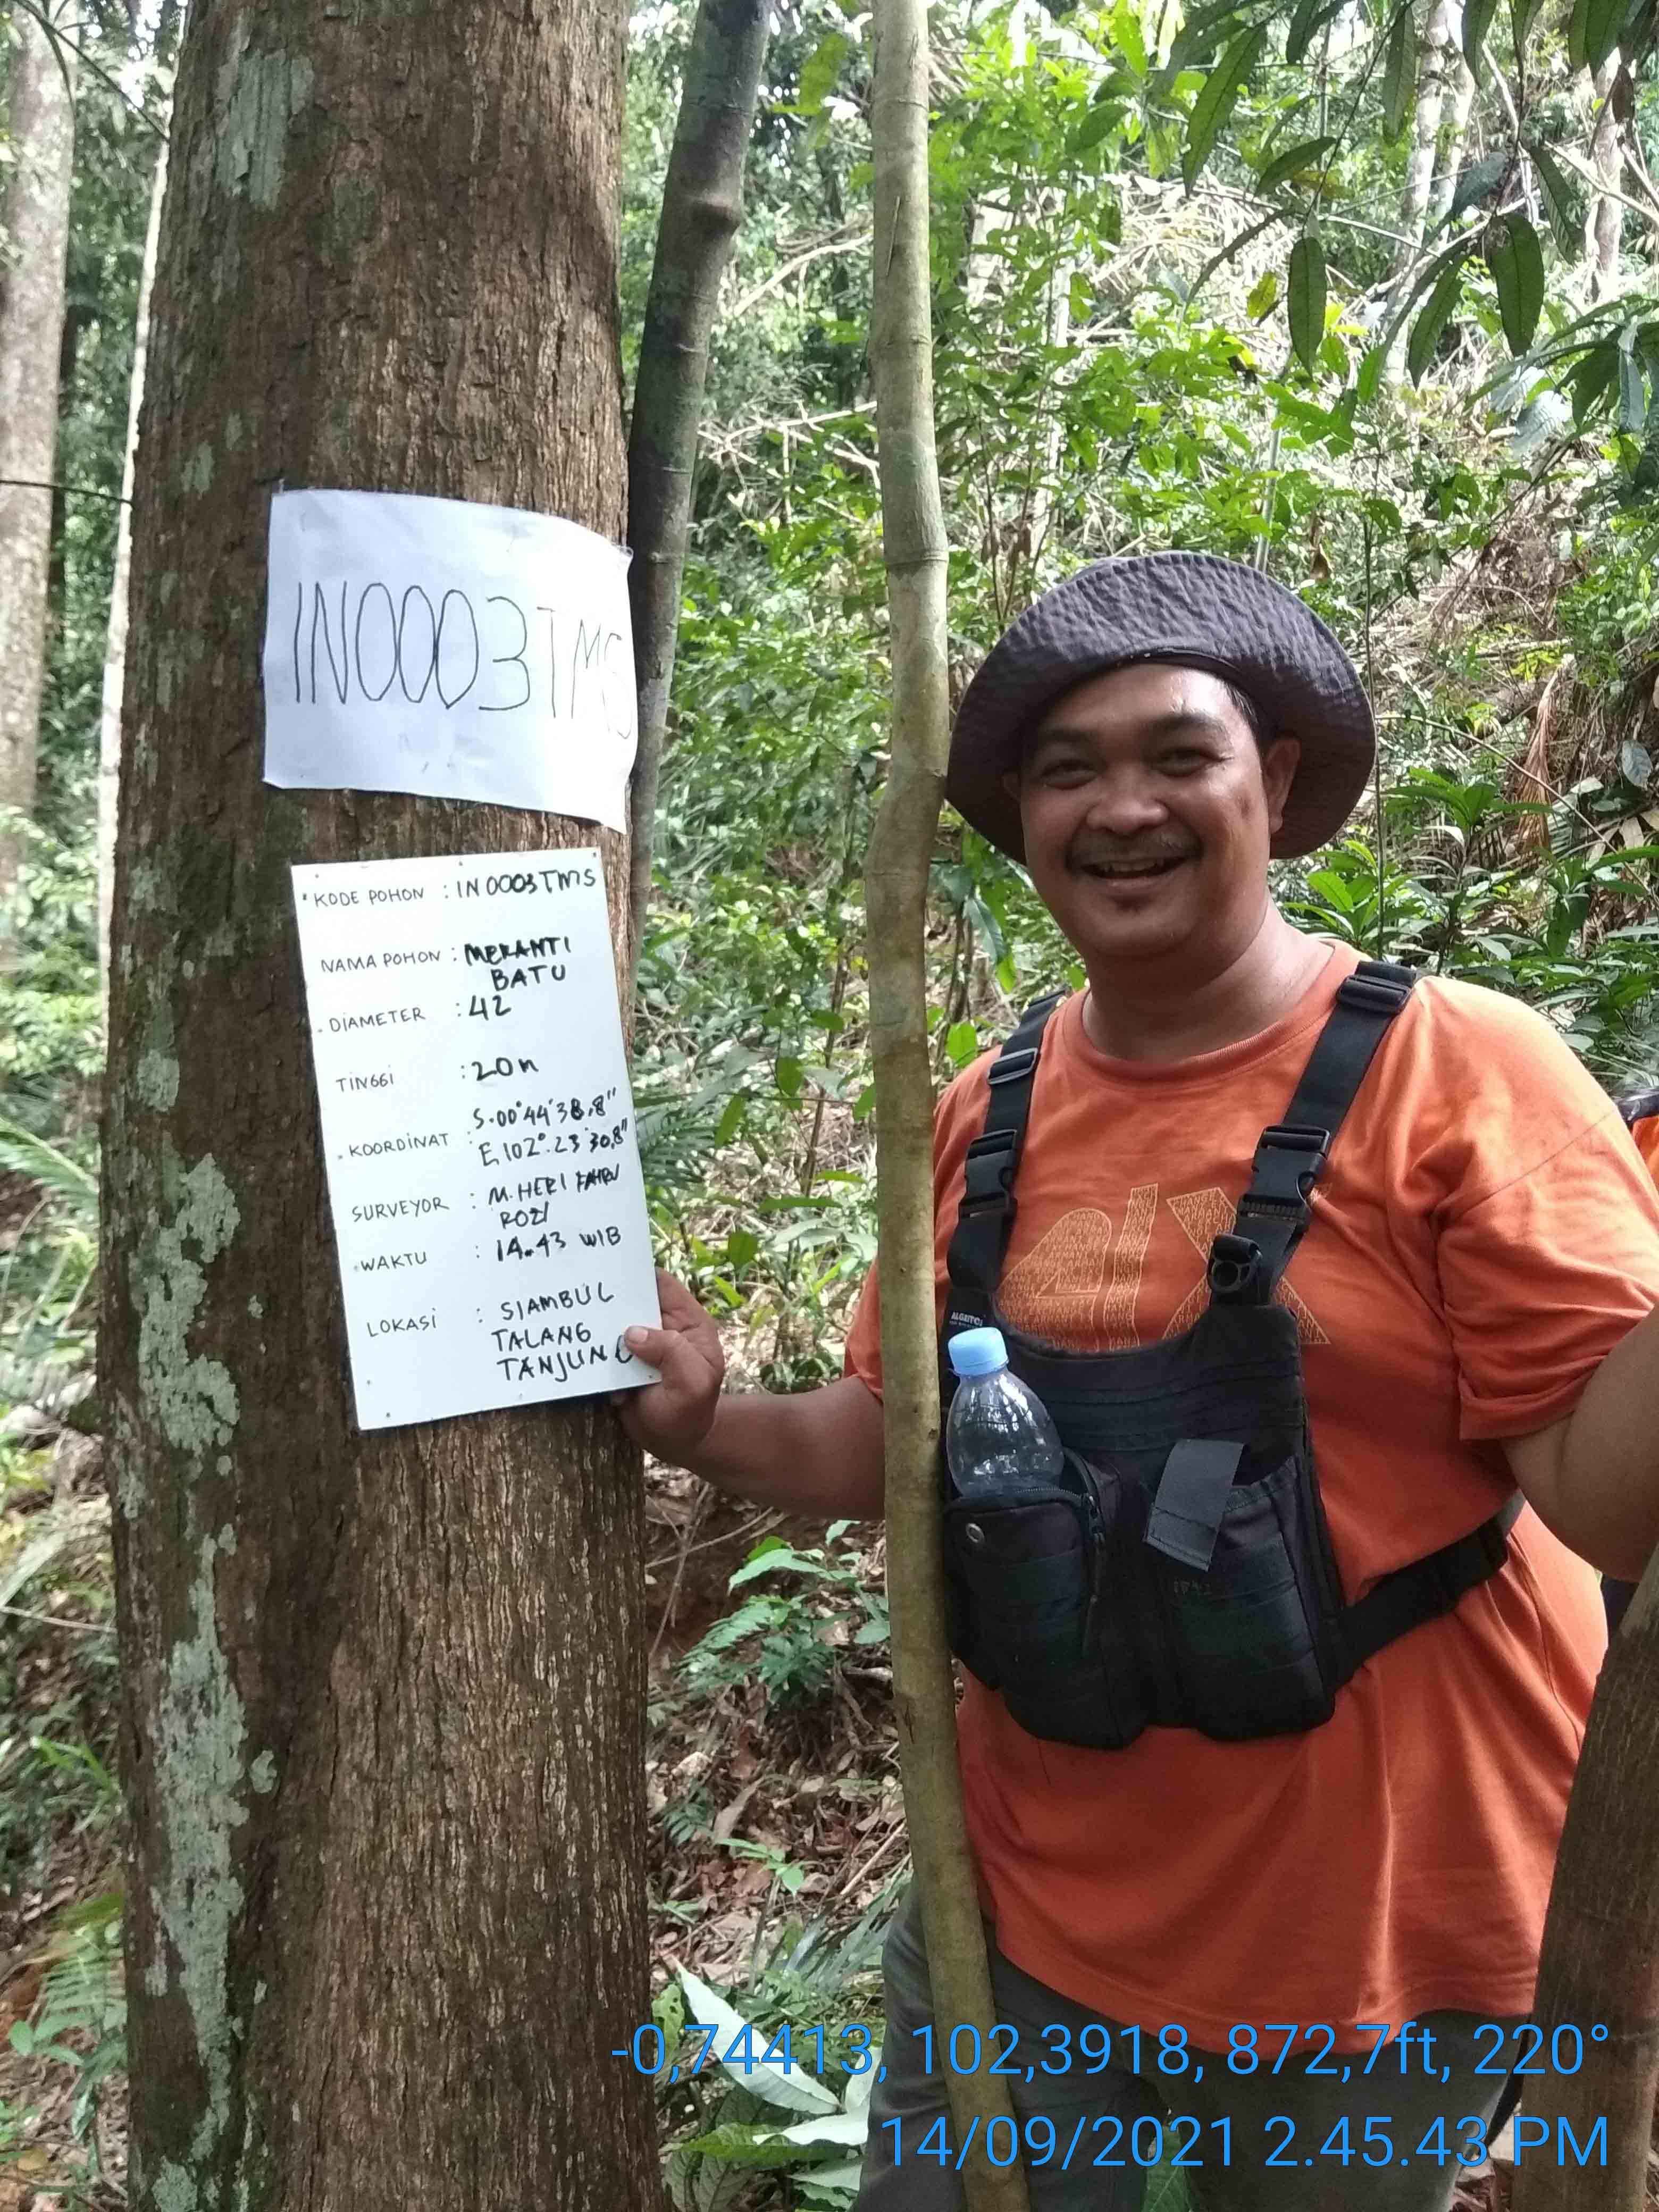 IN0003TMS
KODE POHON : IN0003TMS
NAMA POHON : MERANTI
BATU
DIAMETER : 42
TINGGI : 20m
S.00°44'38,8"
KOORDINAT : E 102°.23'30,8"
SURVEYOR : M. HERI FAHRU
ROZI
WAKTU : 14.43 WIB
LOKASI : SIAMBUL
TALANG
TANJUNG
-0,74413, 102,3918, 872,7ft, 220°
14/09/2021 2.45.43 PM